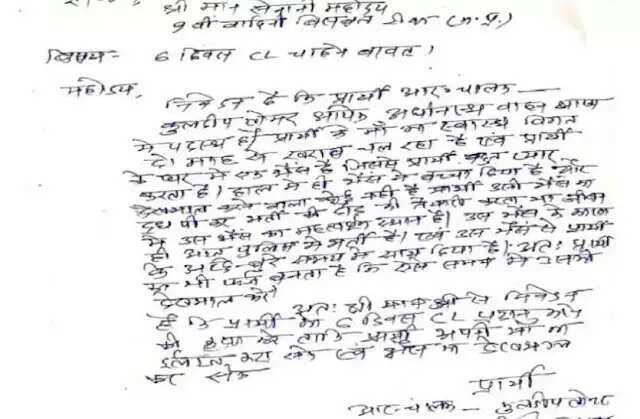 श्री मान सेनानी महोदय
9 वी वाहिनी विसबल रीवा (म.प्र.)
विषय- 6 दिवस CL चाहने बावत।
महोदय,
निवेदन है कि प्रार्थी आर-चालक
कुलदीप तोमर आपके अधीनस्थ वाहन शाखा
में पदस्थ है। प्रार्थी के माँ का स्वास्थ्य विगत
दो माह से खराब चल रहा है एवं प्रार्थी
के घर में एक भैंस है जिससे प्रार्थी बहुत प्यार
करता है। हाल में ही भैंस ने बच्चा दिया है और
देखभाल करने वाला कोई नहीं है प्रार्थी उसी भैंस का
दूध पी कर भर्ती की दौड़ की तैयारी करता था जीवन
में उस भैंस का महत्वपूर्ण स्थान है। उस भैंस के कारण
ही आज पुलिस में भर्ती है। एवं उस भैंस ने प्रार्थी
के अच्छे-बुरे समय में साथ दिया है। अतः प्रार्थी
का भी फर्ज बनता है कि ऐसे समय में उसकी
देखभाल करे।
अतः श्री मान जी से निवेदन
है कि प्रार्थी को 6 दिवस CL प्रदान करने
की कृपा करे ताकि प्रार्थी अपनी माँ का
ईलाज करा सके एवं भैंस का देखभाल
कर सके
प्रार्थी
आर-चालक - कुलदीप तोमर